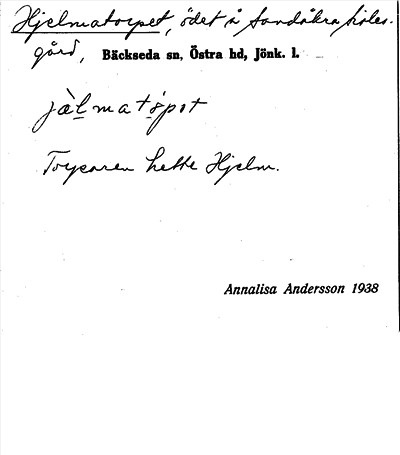 Hjelmatorpet, ödet å Sandåkra
gård, Bäckseda sn, Östra hd, Jönk. l.
jàlmatȯ̀rpət
Torparen hette Hjelm.
Annalisa Andersson 1938